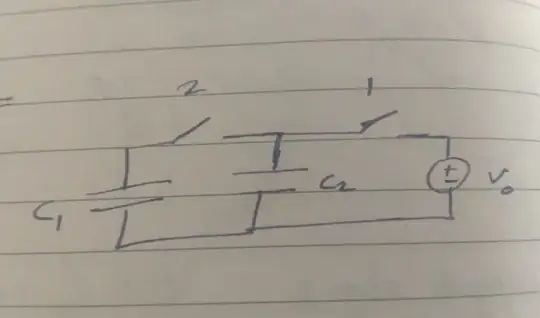 2 1
C₁ C₂ ± V₀